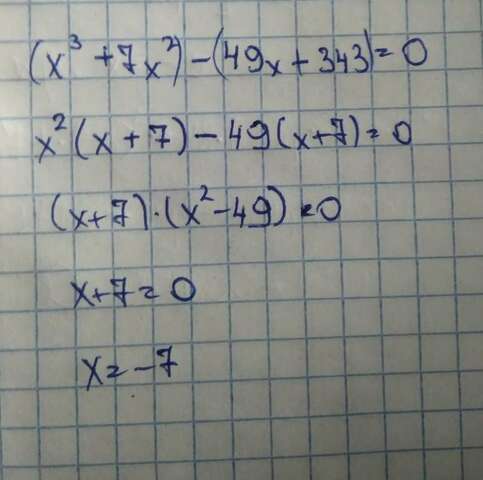 (x³ + 7x²) - (49x + 343) = 0
x² (x + 7) - 49 (x+7) = 0
(x+7) · (x² - 49) = 0
x + 7 = 0
x = -7